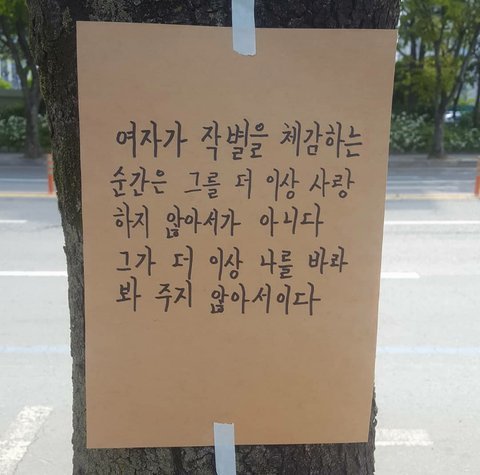 여자가 작별을 체감하는
순간은 그를 더 이상 사랑
하지 않아서가 아니다
그가 더 이상 나를 바라
봐 주지 않아서이다